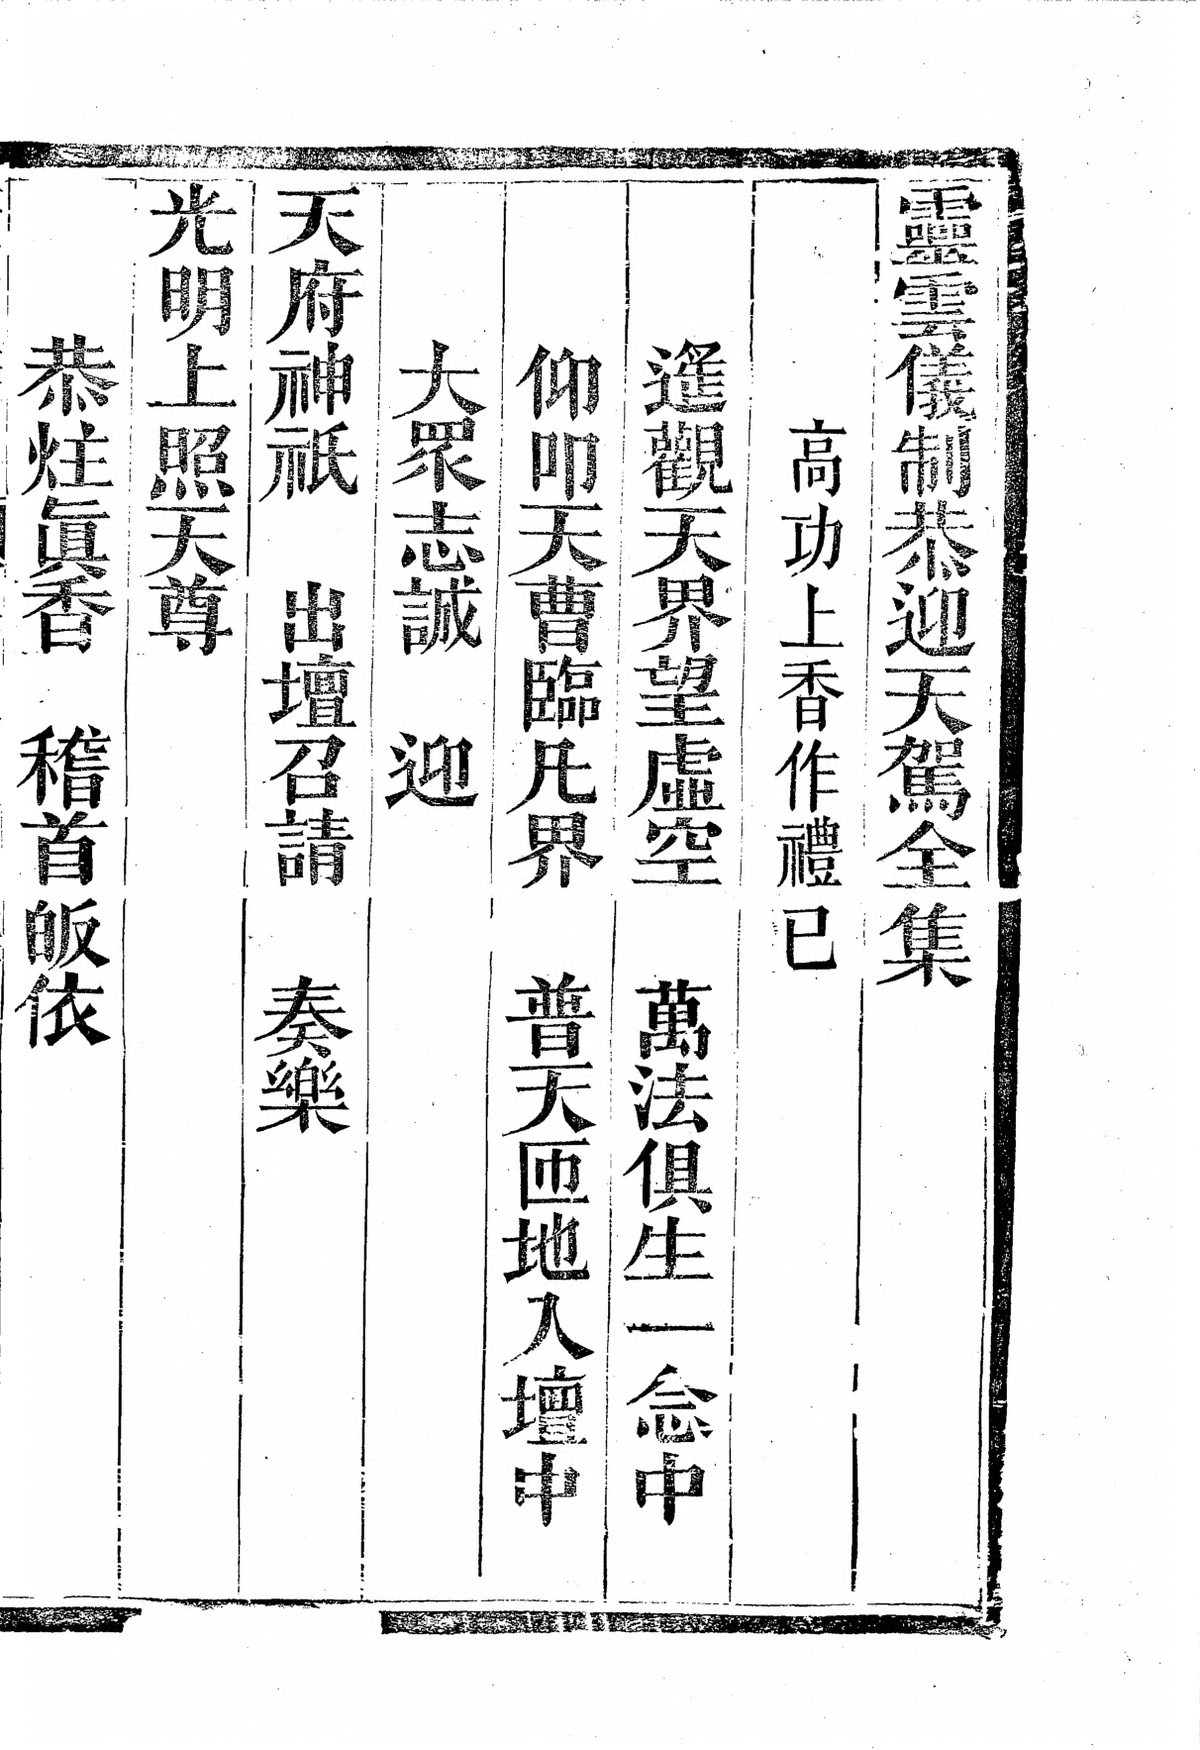 靈雲儀制恭迎天駕全集
高功上香作禮已
遙觀天界望虛空　萬法俱生一念中
仰叩天曹臨凡界　普天匝地入壇中
大眾志誠　迎
天府神祇　出壇召請　奏樂
光明上照天尊
恭炷眞香　稽首皈依